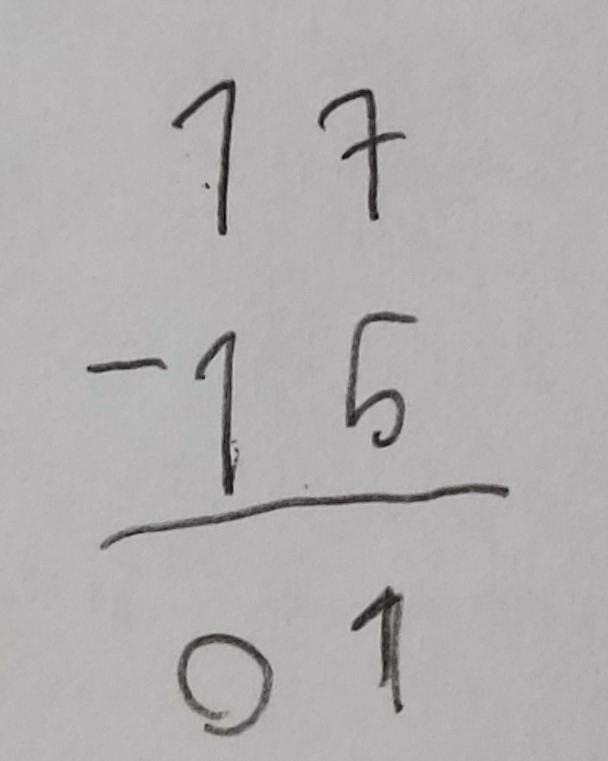 17
-15
01